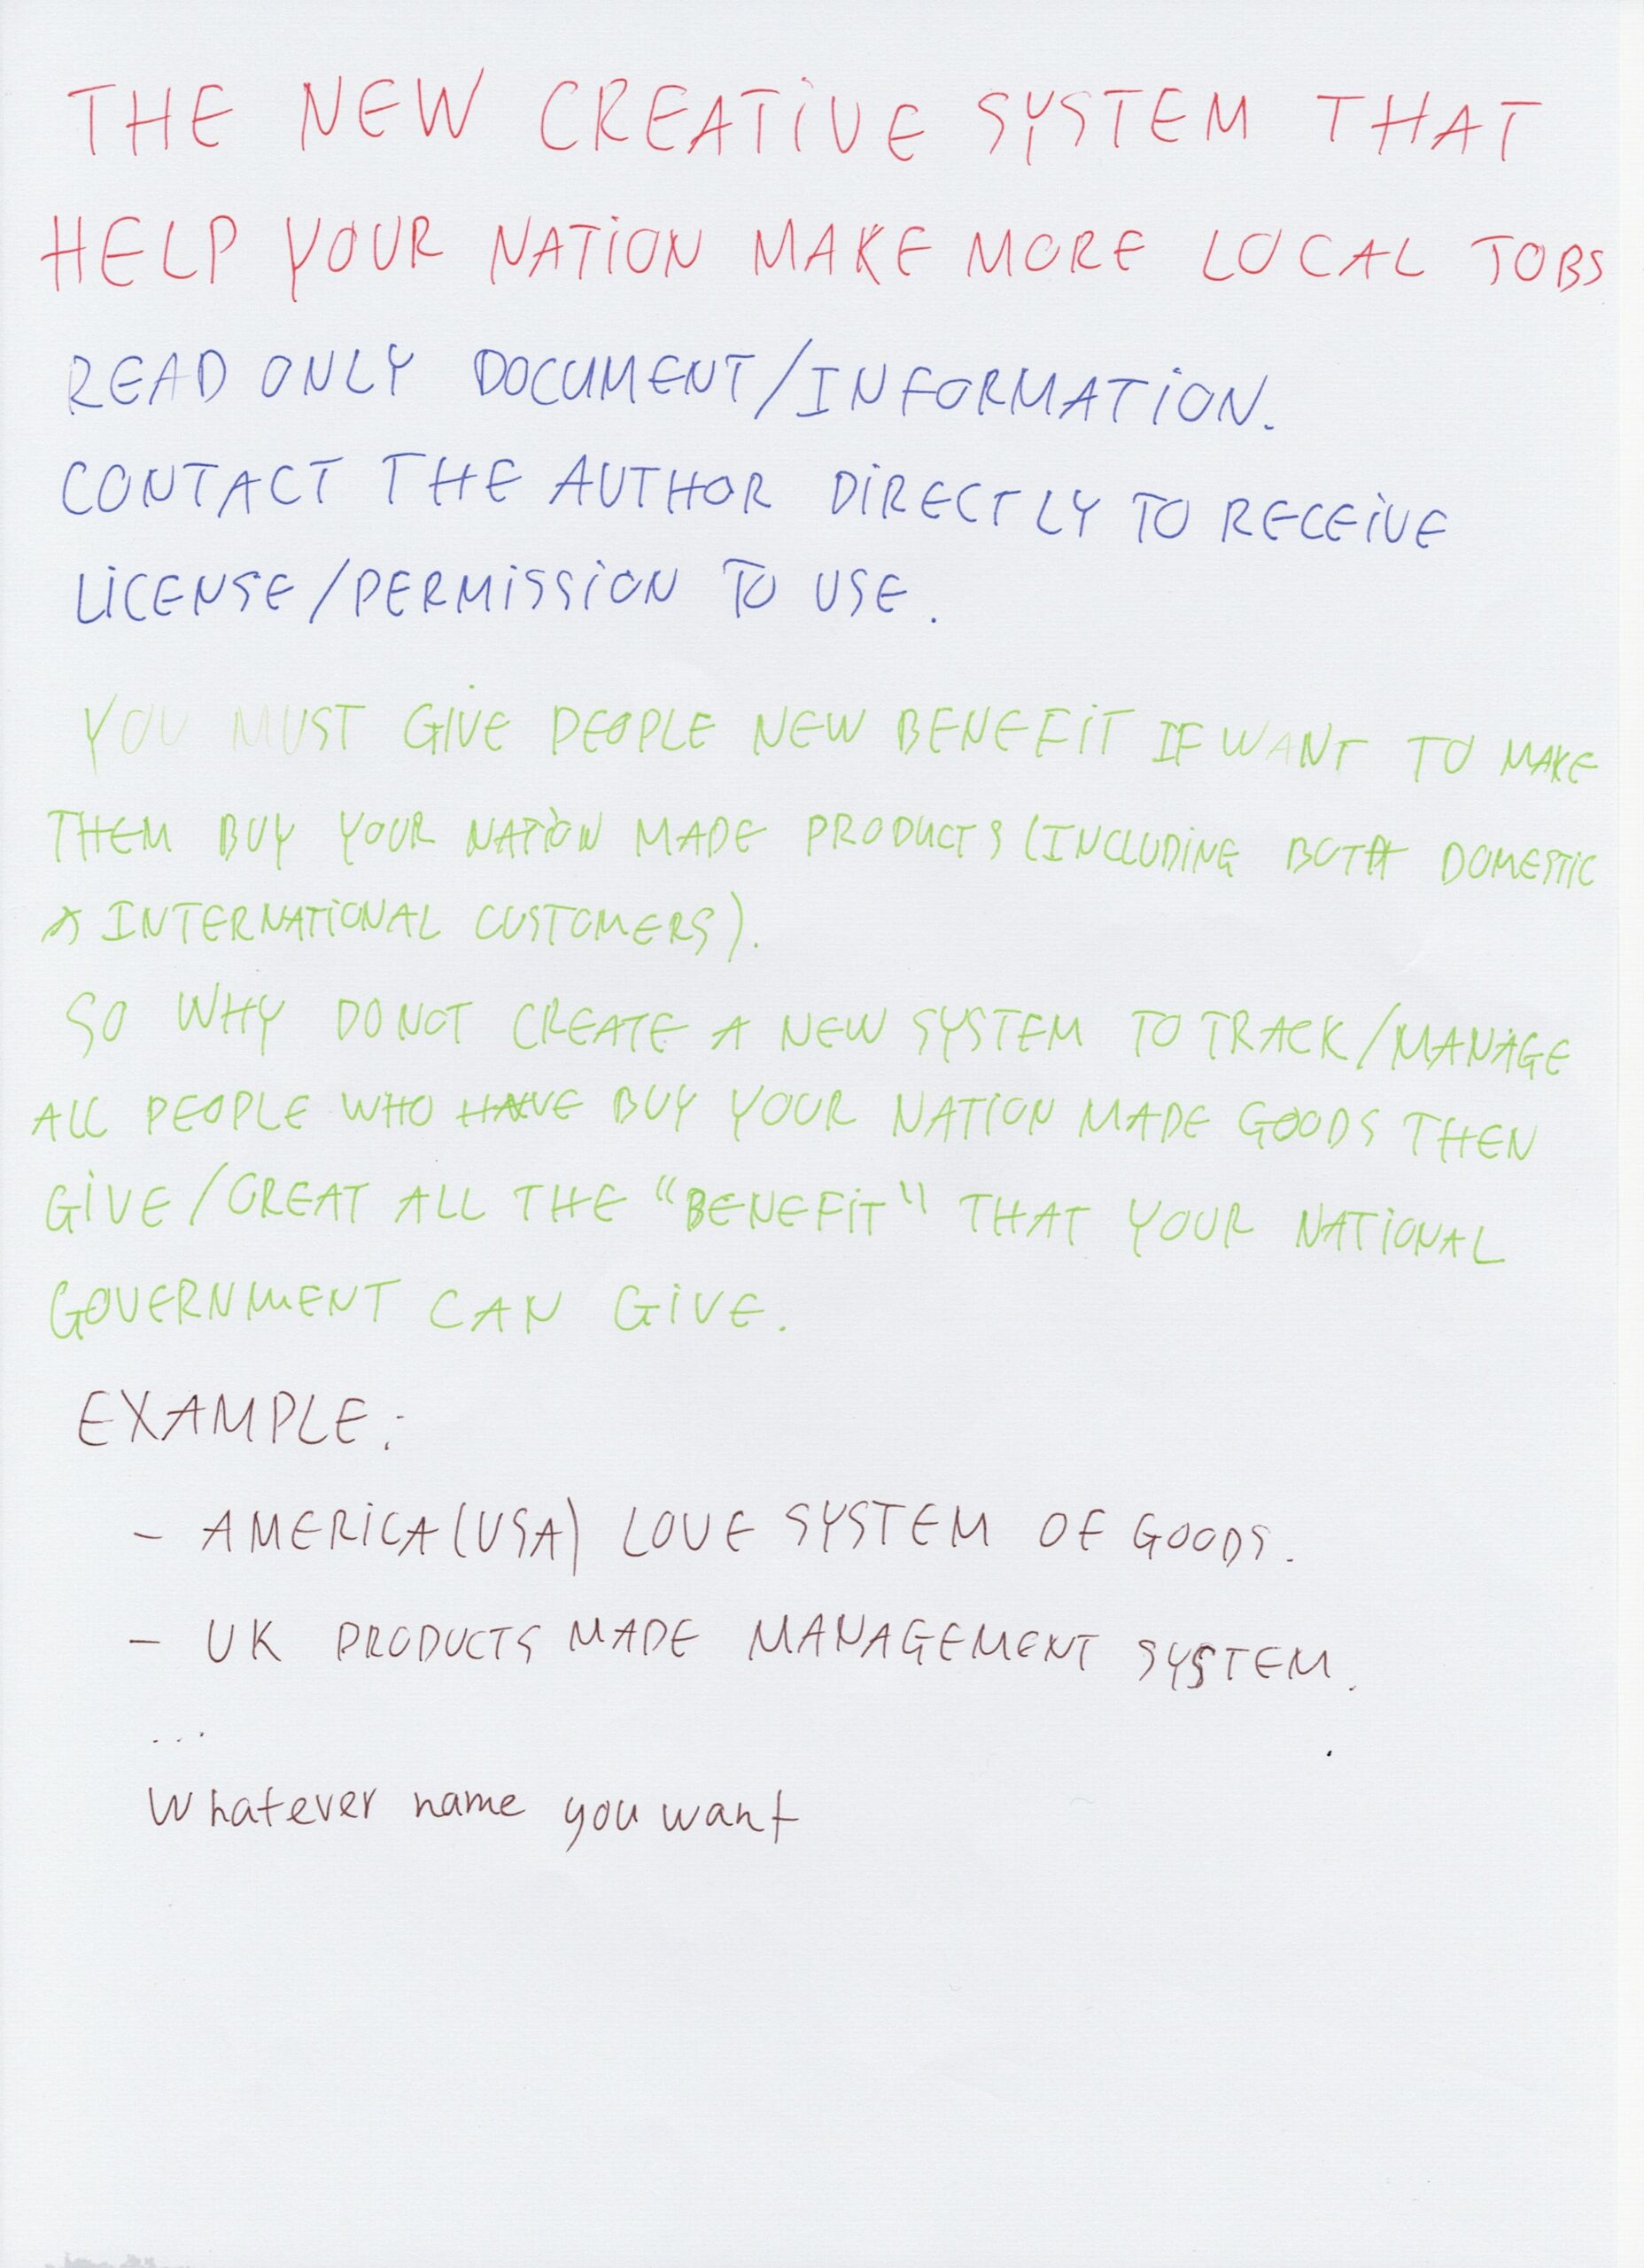 THE NEW CREATIVE SYSTEM THAT
HELP YOUR NATION MAKE MORE LOCAL JOBS
READ ONLY DOCUMENT/INFORMATION.
CONTACT THE AUTHOR DIRECTLY TO RECEIVE
LICENSE/PERMISSION TO USE.
YOU MUST GIVE PEOPLE NEW BENEFIT IF WANT TO MAKE
THEM BUY YOUR NATION MADE PRODUCTS (INCLUDING BOTH DOMESTIC
& INTERNATIONAL CUSTOMERS).
SO WHY DO NOT CREATE A NEW SYSTEM TO TRACK/MANAGE
ALL PEOPLE WHO HAVE BUY YOUR NATION MADE GOODS THEN
GIVE/GREAT ALL THE "BENEFIT" THAT YOUR NATIONAL
GOVERNMENT CAN GIVE.
EXAMPLE:
- AMERICA(USA) LOVE SYSTEM OF GOODS.
- UK PRODUCTS MADE MANAGEMENT SYSTEM.
...
Whatever name you want